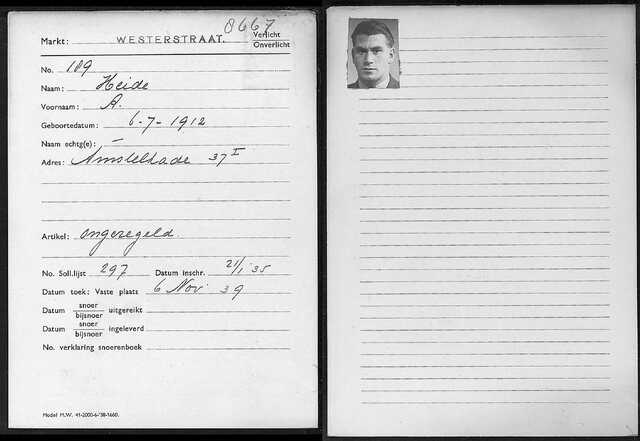 8667
Markt: WESTERSTRAAT. Verlicht
Onverlicht
No. 189
Naam: Heide
Voornaam: A.
Geboortedatum: 6-7-1912
Naam echtg(e): –
Adres: Amstelkade 37 I
Artikel: ongeregeld.
No. Soll.lijst 297 Datum inschr. 21/1 '35
Datum toek: Vaste plaats 6 Nov. 39
Datum snoer uitgereikt
bijsnoer
Datum snoer ingeleverd
bijsnoer
No. verklaring snoerenboek
Model M.W. 41-2000-6-'38-1660.